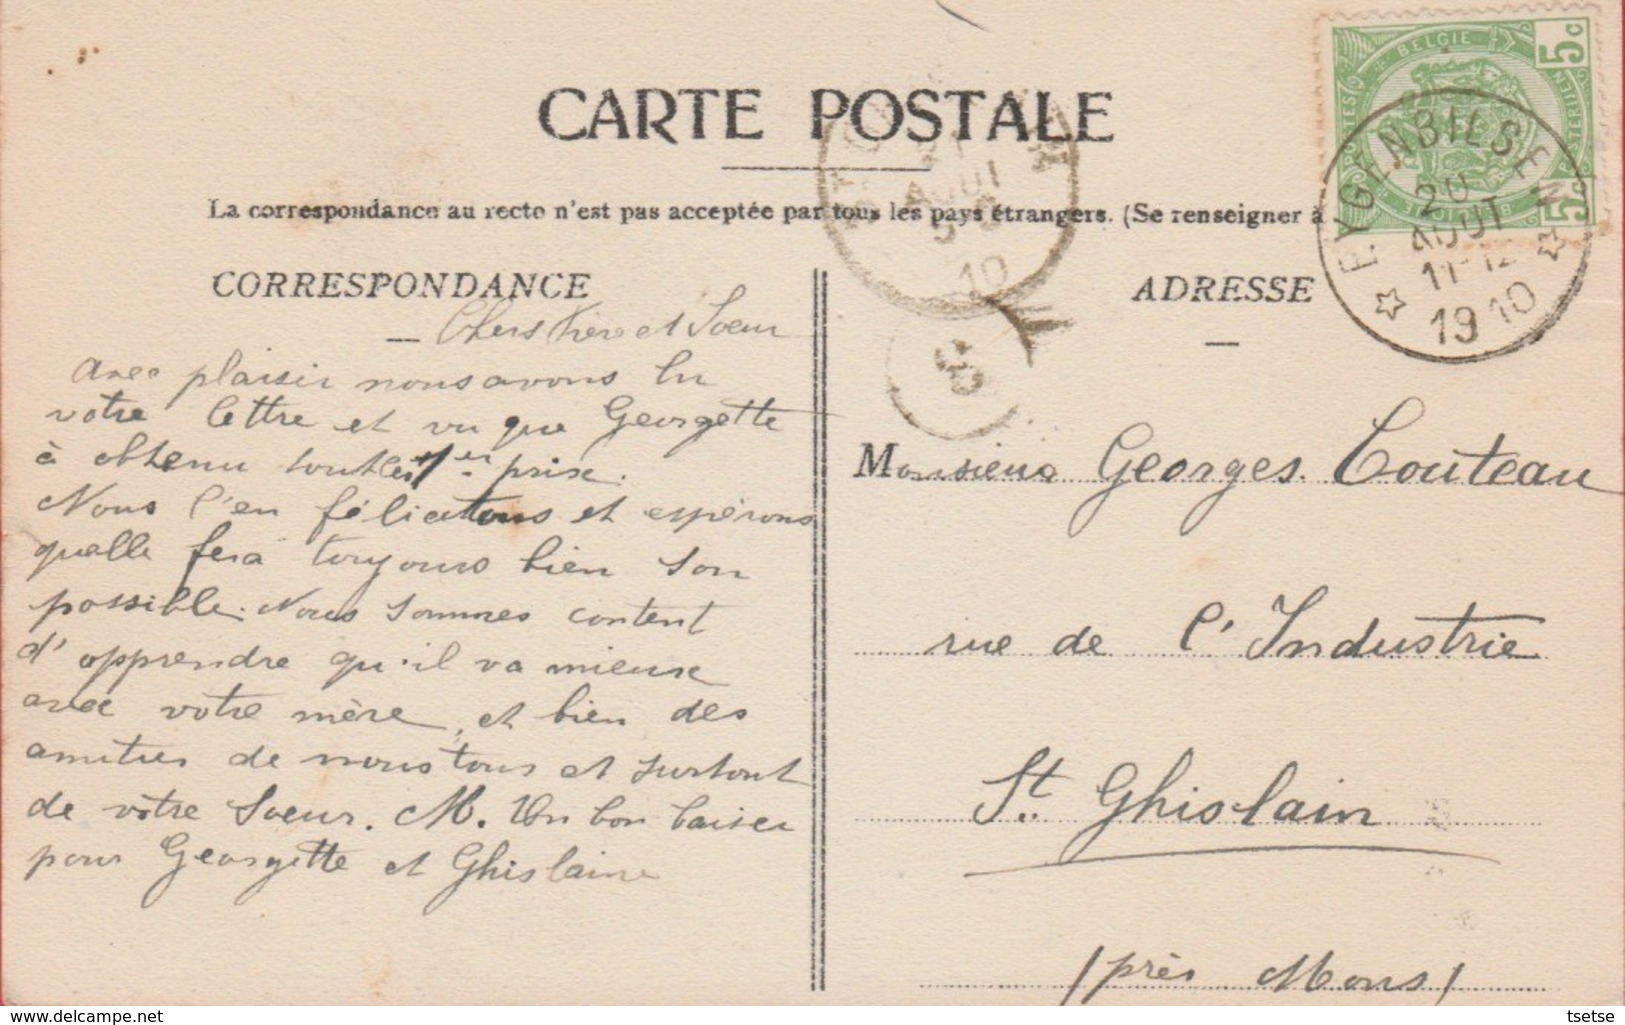 CARTE POSTALE
La correspondance au recto n'est pas acceptée par tous les pays étrangers. (Se renseigner à
5c
BELGIE
5c
EYGENBILSEN
20
AOUT
11-12
1910
AOUT
10
CORRESPONDANCE
ADRESSE
Chers Frère et Soeur
Avec plaisir nous avons lu
votre lettre et vu que Georgette
à obtenu toutles 1er prix.
Nous l'en félicitons et espérons
quelle fera toujours bien son
possible. Nous sommes content
d'apprendre qu'il va mieux
avec votre mère, et bien des
amitiés de nous tous et surtout
de vôtre Soeur. M. Un bon baiser
pour Georgette et Ghislaine
Monsieur Georges. Couteau
rue de l'Industrie
St. Ghislain
/près Mons/
tsetse